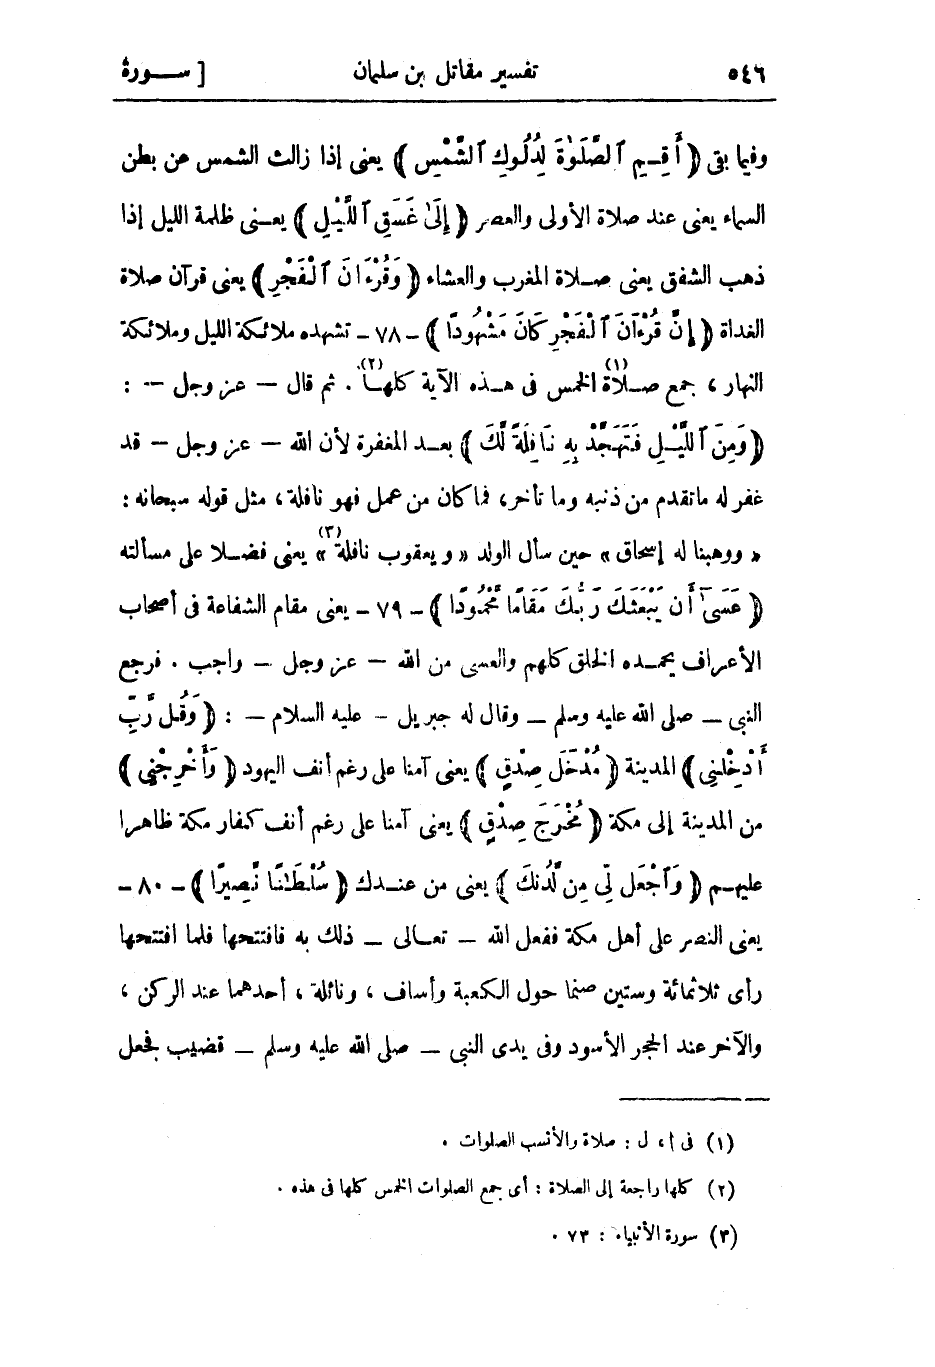 ٥٤٦ تفسير مقاتل بن سليمان [ ســـورة
وفيما بقى ﴿ أَقِـمِ ٱلصَّلَوٰةَ لِدُلُوكِ ٱلشَّمْسِ ﴾ يعنى إذا زالت الشمس عن بطن
السماء يعنى عند صلاة الأولى والعصر ﴿ إِلَىٰ غَسَقِ ٱللَّيْلِ ﴾ يعـنى ظلمة الليل إذا
ذهب الشفق يعنى صـلاة المغرب والعشاء ﴿ وَقُرْءَانَ ٱلْفَجْرِ ﴾ يعنى قرآن صلاة
الغداة ﴿ إِنَّ قُرْءَانَ ٱلْفَجْرِ كَانَ مَشْهُودًا ﴾ ـ ٧٨ ـ تشهده ملائكة الليل وملائكة
النهار ، جمع صـلاة (١) الخمس فى هـذه الآية كلهـا (٢) . ثم قال — عز وجل — :
﴿ وَمِنَ ٱللَّيْـلِ فَتَهَجَّدْ بِهِ نَافِلَةً لَّكَ ﴾ بعـد المغفرة لأن الله — عز وجل — قد
غفر له ماتقدم من ذنبه وما تأخر، فما كان من عمل فهو نافلة ، مثل قوله سبحانه :
« ووهبنا له إسحاق » حين سأل الولد « و يعقوب نافلة (٣) » يعنى فضـلا على مسألته
﴿ عَسَىٰٓ أَن يَبْعَثَكَ رَبُّكَ مَقَامًا مَّحْمُودًا ﴾ ـ ٧٩ ـ يعنى مقام الشفاعة فى أصحاب
الأعراف يحمـده الخلق كلهم والعسى من الله — عز وجل — واجب . فرجع
النبى — صلى الله عليه وسلم — وقال له جبريل - عليه السلام — : ﴿ وَقُل رَّبِّ
أَدْخِلْنِى ﴾ المدينة ﴿ مُدْخَلَ صِدْقٍ ﴾ يعنى آمنا على رغم أنف اليهود ﴿ وَأَخْرِجْنِى ﴾
من المدينة إلى مكة ﴿ مُخْرَجَ صِدْقٍ ﴾ يعنى آمنا على رغم أنف كفار مكة ظاهرا
عليهـم ﴿ وَٱجْعَل لِّى مِن لَّدُنكَ ﴾ يعنى من عنـدك ﴿ سُلْطَـٰنًا نَّصِيرًا ﴾ ـ ٨٠ ـ
يعنى النصر على أهل مكة ففعل الله — تعـالى — ذلك به فافتتحها فلما افتتحها
رأى ثلاثمائة وستين صنما حول الكعبة وأساف ، ونائلة ، أحدهما عند الركن ،
والآخر عند الحجر الأسود وفى يدى النبى — صلى الله عليه وسلم — قضيب فجعل
(١) فى أ، ل : صلاة والأنسب الصلوات .
(٢) كلها راجعة إلى الصلاة : أى جمع الصلوات الخمس كلها فى هذه .
(٣) سورة الأنبياء : ٧٣ .